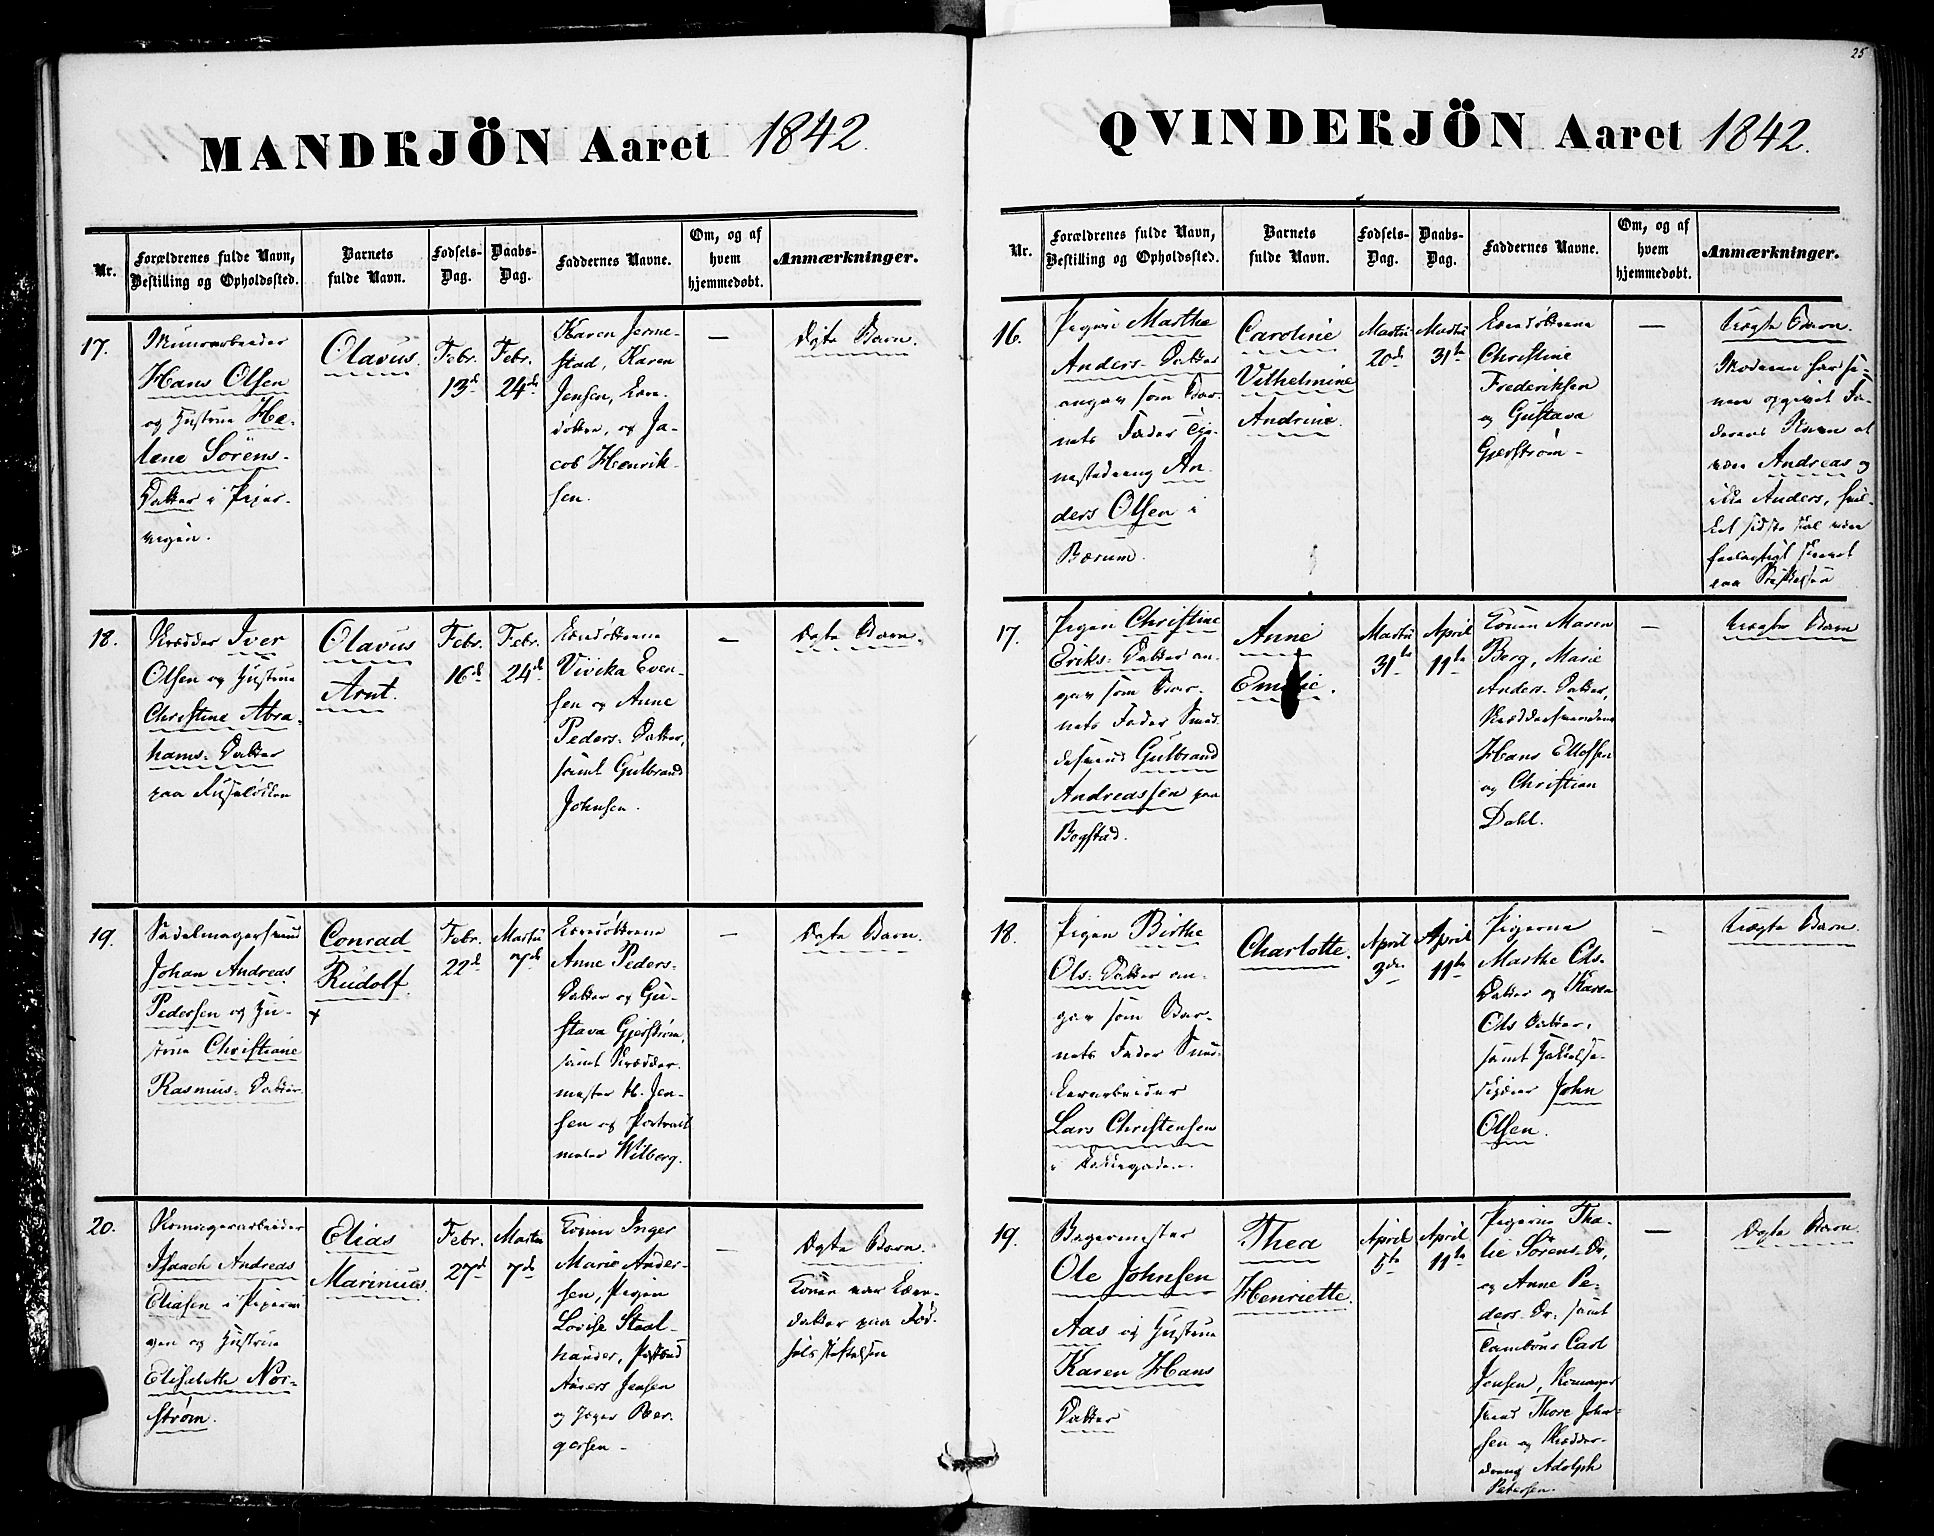 25
MANDKJÖN Aaret 1842.
Nr.
Forældrenes fulde Navn,
Bestilling og Opholdssted.
Barnets
fulde Navn.
Fødsels-
Dag.
Daabs-
Dag.
Faddernes Navne.
Om, og af
hvem
hjemmedøbt.
Anmærkninger.
17.
Hans Olsen
og Hustrue He-
lene Sörens-
Datter i
Olavus
Febr.
13d
Febr.
24de
Karen
stad, Karen
Jensen,
og Ja-
cob Henrik-
sen.
—
Ægte Barn.
18.
Skrædder Iver
Olsen og Hustrue
Christine Abra-
hams-Datter
paa
Olavus
Arnt.
Febr.
16d
Febr.
24de
Vivika Even-
sen og Anne
Peders-Datter,
samt Gulbrand
Johnsen.
—
Ægte Barn
19.
Sadelmagersvend
Johan Andreas
Pedersen og Hu-
strue Christiane
Rasmus-Datter.
Conrad
Rudolf
Febr.
22d
Martii
7de
Anne Peders-
Datter og Gu-
stava Gjerström,
samt Skrædder-
mester H. Jen-
sen og Portrait
maler Wilberg.
—
Ægte Barn.
20.
Isaach Andreas
Eliasen i
og Hustrue
Elisabeth Nor-
ström.
Elias
Marinius
Febr.
27d
Martii
7de
Konen Inger
Marie Ander-
sen, Pigen
Lovise
Jensen
og
—
Ægte Barn.
QVINDEKJÖN Aaret 1842.
Nr.
Forældrenes fulde Navn,
Bestilling og Opholdssted.
Barnets
fulde Navn.
Fødsels-
Dag.
Daabs-
Dag.
Faddernes Navne.
Om, og af
hvem
hjemmedøbt.
Anmærkninger.
16.
Pigen Marthe
Anders-Datter
angav som Bar-
nets Fader Tje-
nestedreng An-
ders Olsen i
Bærum.
Caroline
Vilhelmine
Andrine.
Martii
20de
Martii
31te
Christine
Frederiksen
og Gustava
Gjerström-
—
Uægte Barn.
Moderen har se-
nere opgivet Fa-
derens Navn at
være Andreas og
ikke Anders, hvil-
ket sidste skal være
17.
Pigen Christine
Eriks-Datter an-
gav som Bar-
nets Fader
Gulbrand
Andreassen paa
Bogstad.
Anne
Emilie.
Martii
31te
April
11te
Konen Maren
Berg, Marie
Anders-Datter,
Skræddersvendene
Hans Ellefsen
og Christian
Dahl.
—
Uægte Barn
18.
Pigen Birthe
Ols-Datter an-
gav som Bar-
nets Fader
Lars Christensen
i
Charlotte.
April
3die
April
11te
Pigerne
Marthe Ols-
Datter og Karen
Ols Datter,
samt
John
Olsen.
—
Uægte Barn.
19.
Bagermester
Ole Johnsen
Aas og Hustrue
Karen Hans
Datter
Thea
Henriette.
April
5te
April
11te
Pigerne Tha-
lie Sörens-Dr,
og Anne Pe-
ders-Dr. samt
Tambour Carl
Jensen,
svend Thore John-
sen og Skrædder-
dreng Adolph
Petersen.
—
Ægte Barn